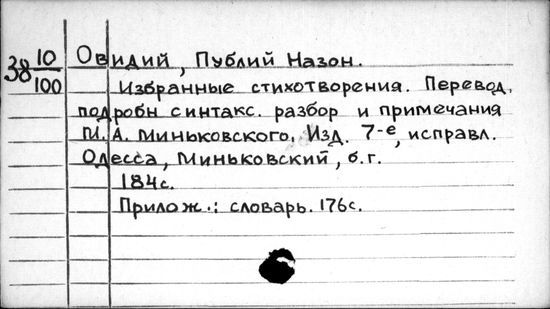 38 10/100
Овидий, Публий Назон.
Избранные стихотворения. Перевод,
подробн синтакс. разбор и примечания
М.А. Миньковского. Изд. 7-е, исправл.
Одесса, Миньковский, б.г.
184с.
Прилож.: словарь. 176с.